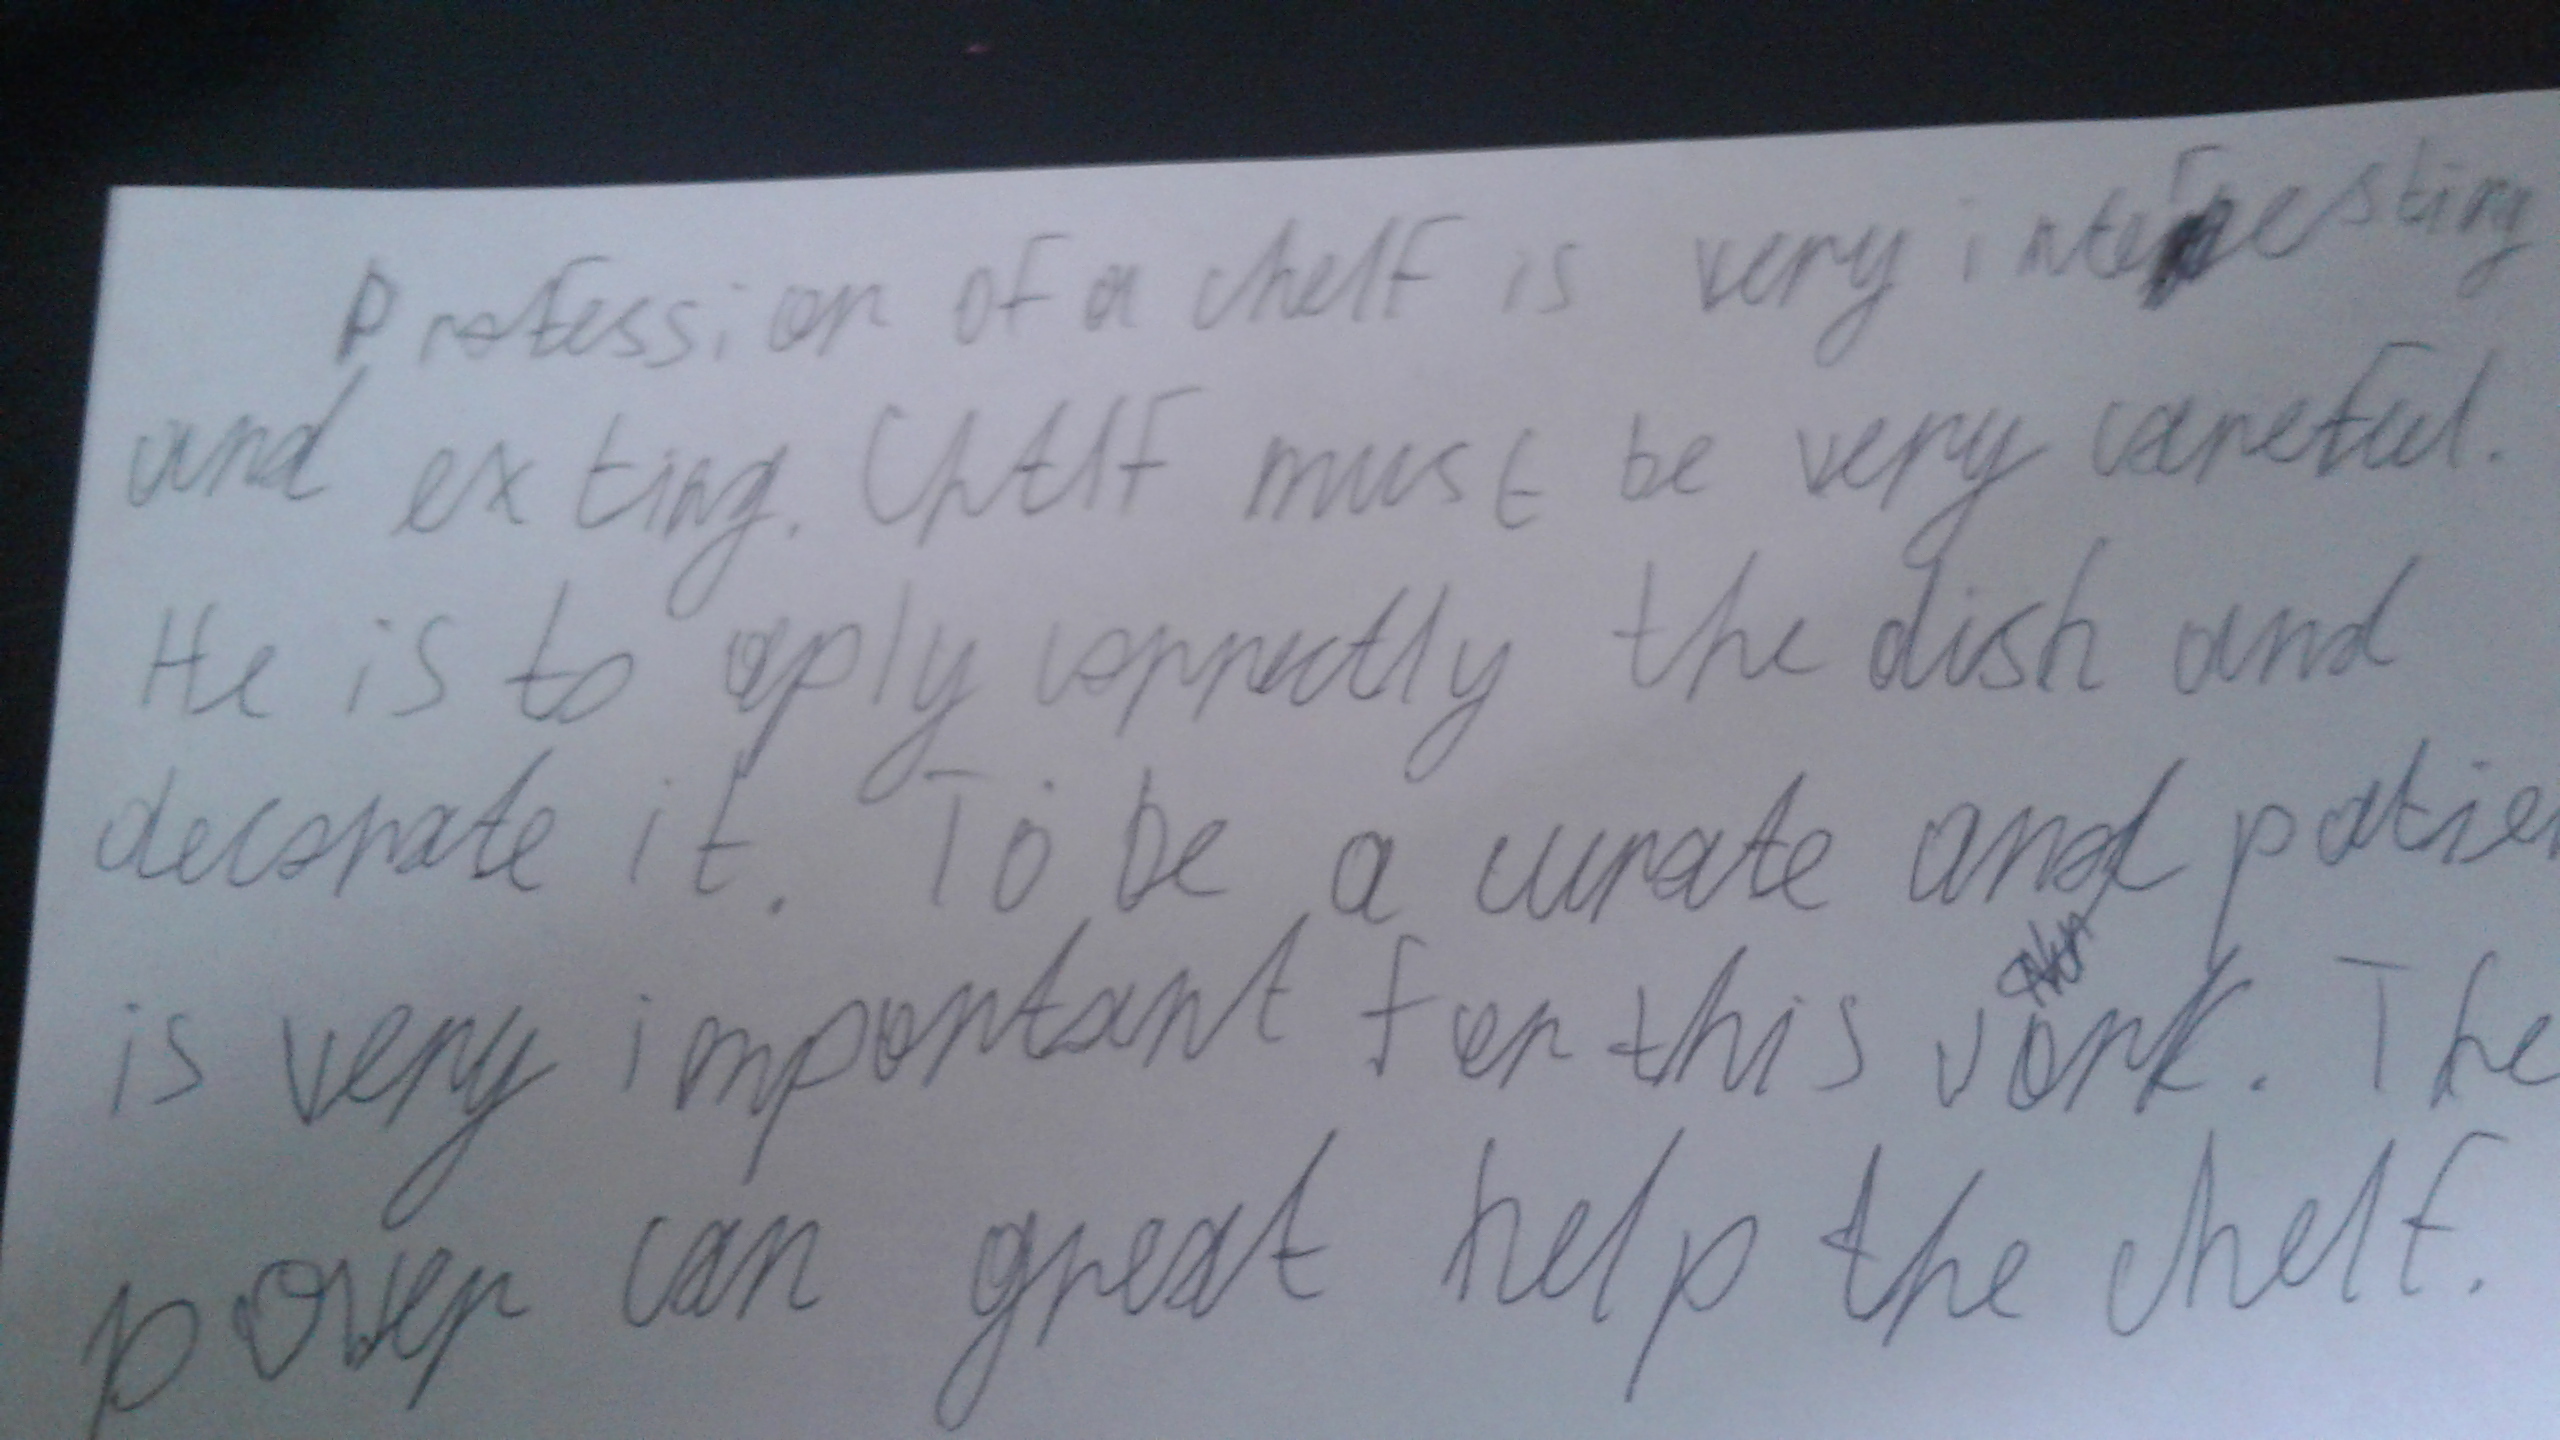 Profession of a chelf is very interesting
and exting. Chelf must be very careful.
He is to aply correctly the dish and
decorate it. To be a curate and patien
is very important for this vork. The
power can great help the chelf.